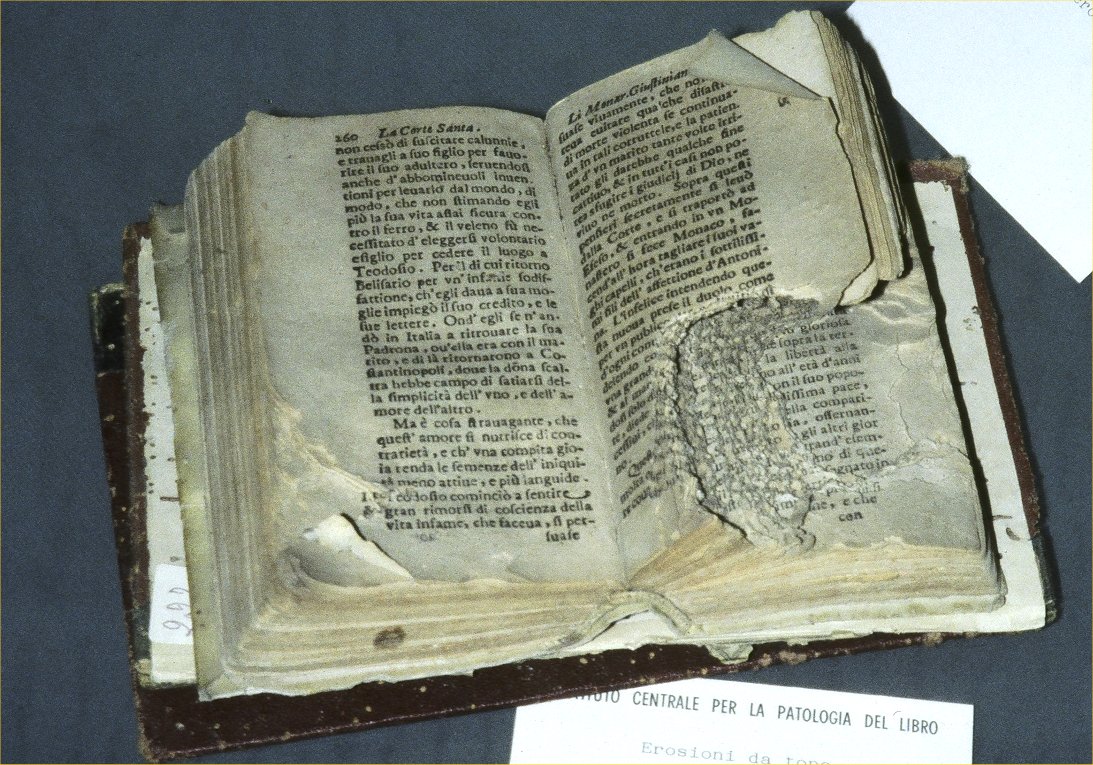 260 La Corte Santa.
non cessò di suscitare calunnie,
e trauagli a suo figlio per fauo-
rire il suo adultero, seruendosi
anche d'abbomineuoli inuen-
tioni per leuarlo dal mondo, di
modo, che non stimando egli
più la sua vita assai sicura con-
tro il ferro, & il veleno fù ne-
cessitato d'eleggersi volontario
esiglio per cedere il luogo a
Teodosio. Per il di cui ritorno
Belisario per vn' infame sodis-
fattione, ch'egli daua a sua mo-
glie impiegò il suo credito, e le
sue lettere. Ond' egli se n' an-
dò in Italia a ritrouare la sua
Padrona, ou'ella era con il ma-
rito, e di là ritornarono a Co-
stantinopoli, doue la dōna scal-
tra hebbe campo di satiarsi del-
la simplicità dell' vno, e dell' a-
more dell'altro.
Ma è cosa strauagante, che
quest' amore si nutrisce di con-
trarietà, e ch' vna compita glo-
ia renda le semenze dell' iniqui-
tà meno attiue, e più languide.
Teodosio cominciò a sentire
gran rimorsi di coscienza della
vita infame, che faceua, si per-
suase
Li Monar. Giustinian
suase viuamente, che non
teua euitare qualche disastr
di morte violenta se continua-
ua in tali corruttele, e la patien-
za d' vn marito tante volte irri-
tato gli darebbe qualche fine
cattiuo, & in tutt'i casi non po-
tea sfugire i giudicij di Dio, ne
viuo ne morto. Sopra questi
pensieri secretamente si leuò
dalla Corte, e si traportò ad
Efeso, & entrando in vn Mo-
nastero, si fece Monaco, fa-
cend'all' hora tagliare i suoi va-
ghi capelli, ch'erano i sottilissi-
mi fili dell' affettione d'Antoni-
na. L'infelice intendendo que-
sta nuoua prese il duolo, come
per vn public
d'ogni cont
dolendo co
vita grand
gloriosa
sopra la ter
la libertà alla
all' età d'anni
on il suo popo-
lissima pace,
ella compati-
ia, osseruan-
gli altri glor
grand' esem-
no di que-
egnato in
e che
con
222
ITUTO CENTRALE PER LA PATOLOGIA DEL LIBRO
Erosioni da topo